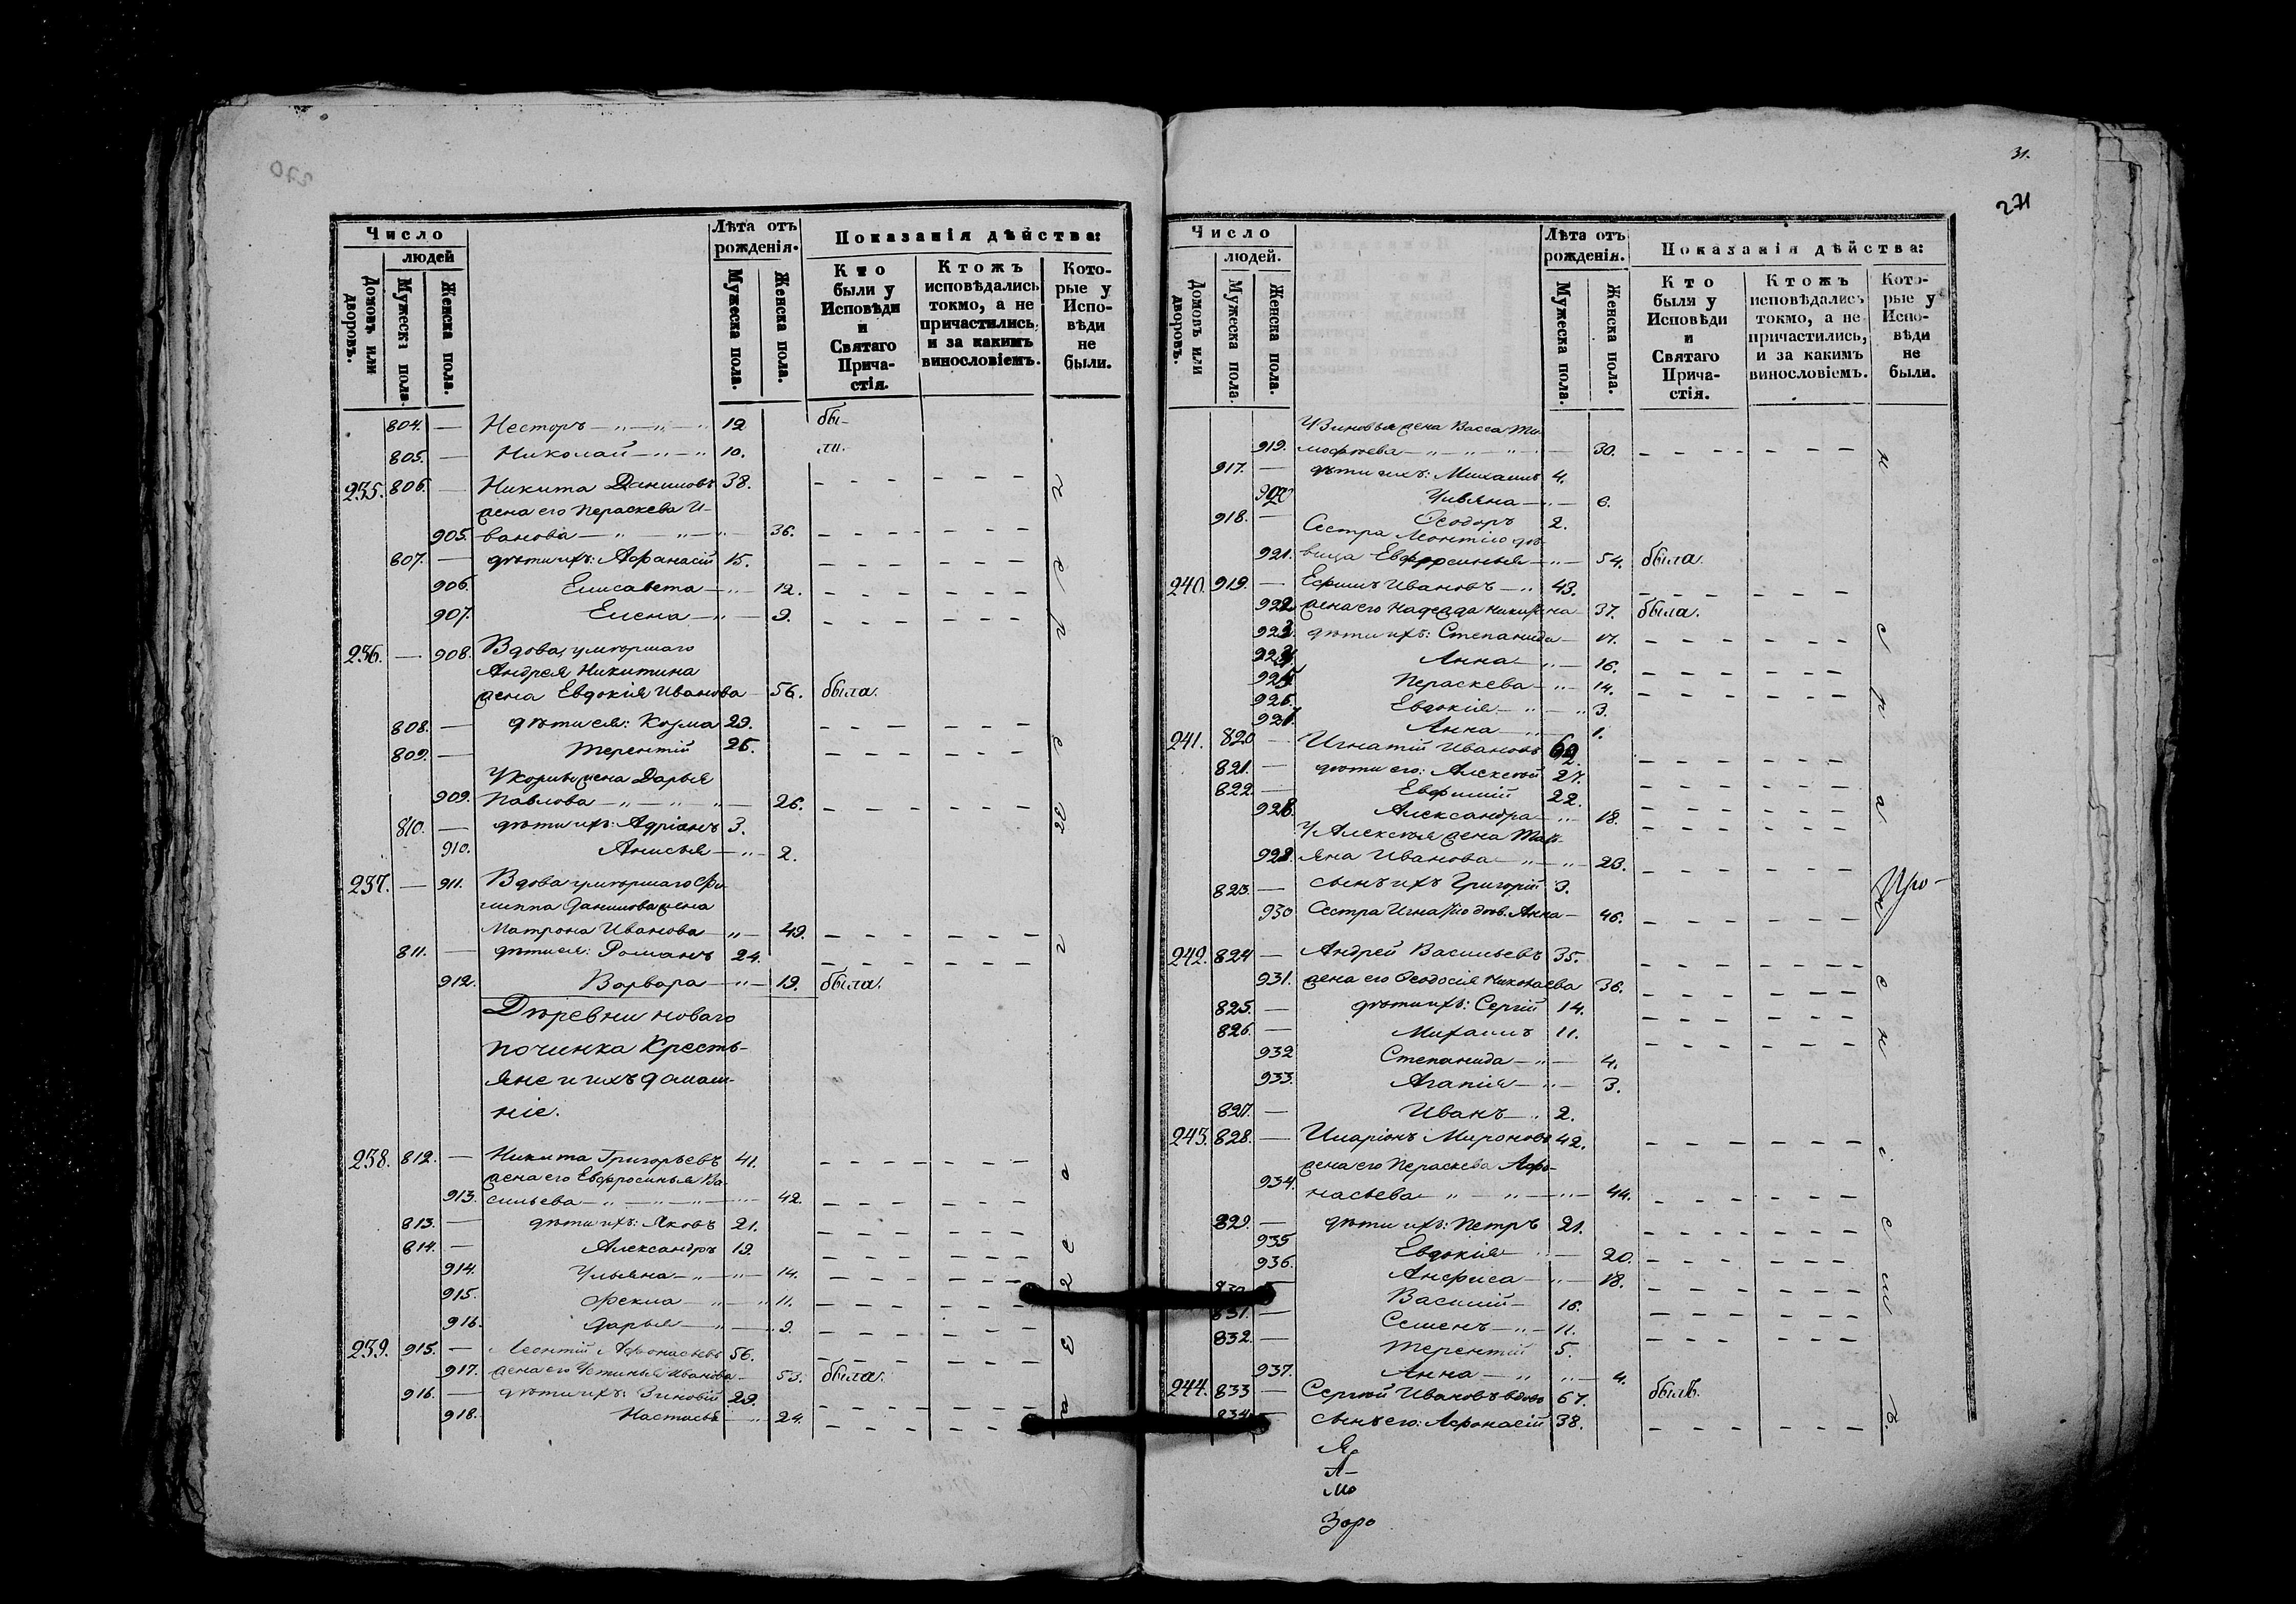 270
Число
людей
Домовъ или дворовъ.
Мужеска пола.
Женска пола.
Лѣта отъ рожденія.
Мужеска пола.
Женска пола.
Показанія дѣйства:
Кто были у Исповѣди и Святаго Прича-стія.
Ктожъ исповѣдались токмо, а не причастились, и за какимъ винословіемъ.
Кото-рые у Испо-вѣди не были.
804. — Несторъ — „ — „ — „ 12 бы-
805. — Николай — „ — „ 10. ли.
235. 806. — Никита Даниловъ 38.
жена его Параскева И-
905. ванова — „ — „ — 36.
807. — дѣти ихъ: Афанасій 15.
906. Елисавета — „ — 12.
907. Елена — „ — 9.
236. — 908. Вдова, умершаго
Андрея Никитина
жена Евдокія Иванова — 56. была.
808. — дѣти ея: Козма 29.
809. — Терентій 25.
У Козмы жена Дарья
909. Павлова — „ — „ — 26.
810. — дѣти ихъ: Адріанъ 3.
910. Анисья — „ — 2.
237. — 911. Вдова умершаго Фи-
липпа Данилова жена
Матрона Иванова — „ — 49.
811. — дѣти ея: Романъ 24.
912. Варвара — „ — 19. была.
Деревни новаго
починка Кресть-
яне и ихъ домаш-
ніе.
238. 812. — Никита Григорьевъ 41.
жена его Евфросинья Ва-
913. сильева — „ — „ — 42.
813. — дѣти ихъ: Яковъ 21.
814. — Александръ 19.
914. Ульяна — „ — „ — 14.
915. Фекла — „ — „ 11.
916. Дарья — „ — 9.
239. 915. — Леонтій Афонасьевъ 56.
917. жена его Устинья Иванова — 53. была.
916. — дѣти ихъ: Зиновій 29.
918. Настасья — „ 24.
31.
271
Число
людей.
Домовъ или дворовъ.
Мужеска пола.
Женска пола.
Лѣта отъ рожденія.
Мужеска пола.
Женска пола.
Показанія дѣйства:
Кто были у Исповѣди и Святаго Прича-стія.
Ктожъ исповѣдались токмо, а не причастились, и за какимъ винословіемъ.
Кото-рые у Испо-вѣди не были.
У Зиновья жена Васса Ти-
919. мофеева — „ — „ — „ — 30.
917. — дѣти ихъ: Михаилъ 4.
920 Ульяна — „ — 6.
918. — Ѳеодоръ 2.
Сестра Леонтію дѣ-
921. вица Евфросинья — „ — 54. была.
240. 919. — Ефимъ Ивановъ — „ 43.
922 жена его Надежда Никитина 37. была.
923. дѣти ихъ: Степанида — 17.
924. Анна — „ — 16.
925 Параскева — „ — 14.
926. Евдокія — „ — „ 3.
927. Анна — „ — 1.
241. 820 — Игнатій Ивановъ 62.
821. — дѣти его: Алексѣй 27.
822. — Евфимій 22.
928. Александра — „ — 18.
У Алексѣя жена Тать-
929. яна Иванова — „ — „ — 23.
823. — сынъ ихъ Григорій 3.
930 Сестра Игнатію дѣв. Анна — 46.
242. 824 — Андрей Васильевъ 35.
931. жена его Ѳеодосія Николаева 36.
825. — дѣти ихъ: Сергій 14.
826. — Михаилъ 11.
932 Степанида — „ — 4.
933. Агапія — „ — 3.
827. — Иванъ — „ 2.
243. 828. — Иларіонъ Мироновъ 42.
жена его Параскева Афо-
934. насьева — „ — „ — „ — 44.
829. — дѣти ихъ: Петръ 21.
935 Евдокія — „ — 20.
936. Анфиса — „ — 18.
830 — Василій — 16.
831. — Семенъ — „ — 11.
832. — Терентій 5.
937. Анна — „ „ — 4.
244. 833 — Сергѣй Ивановъ вдовъ 67. былъ.
834 сынъ его: Афонасій 38.